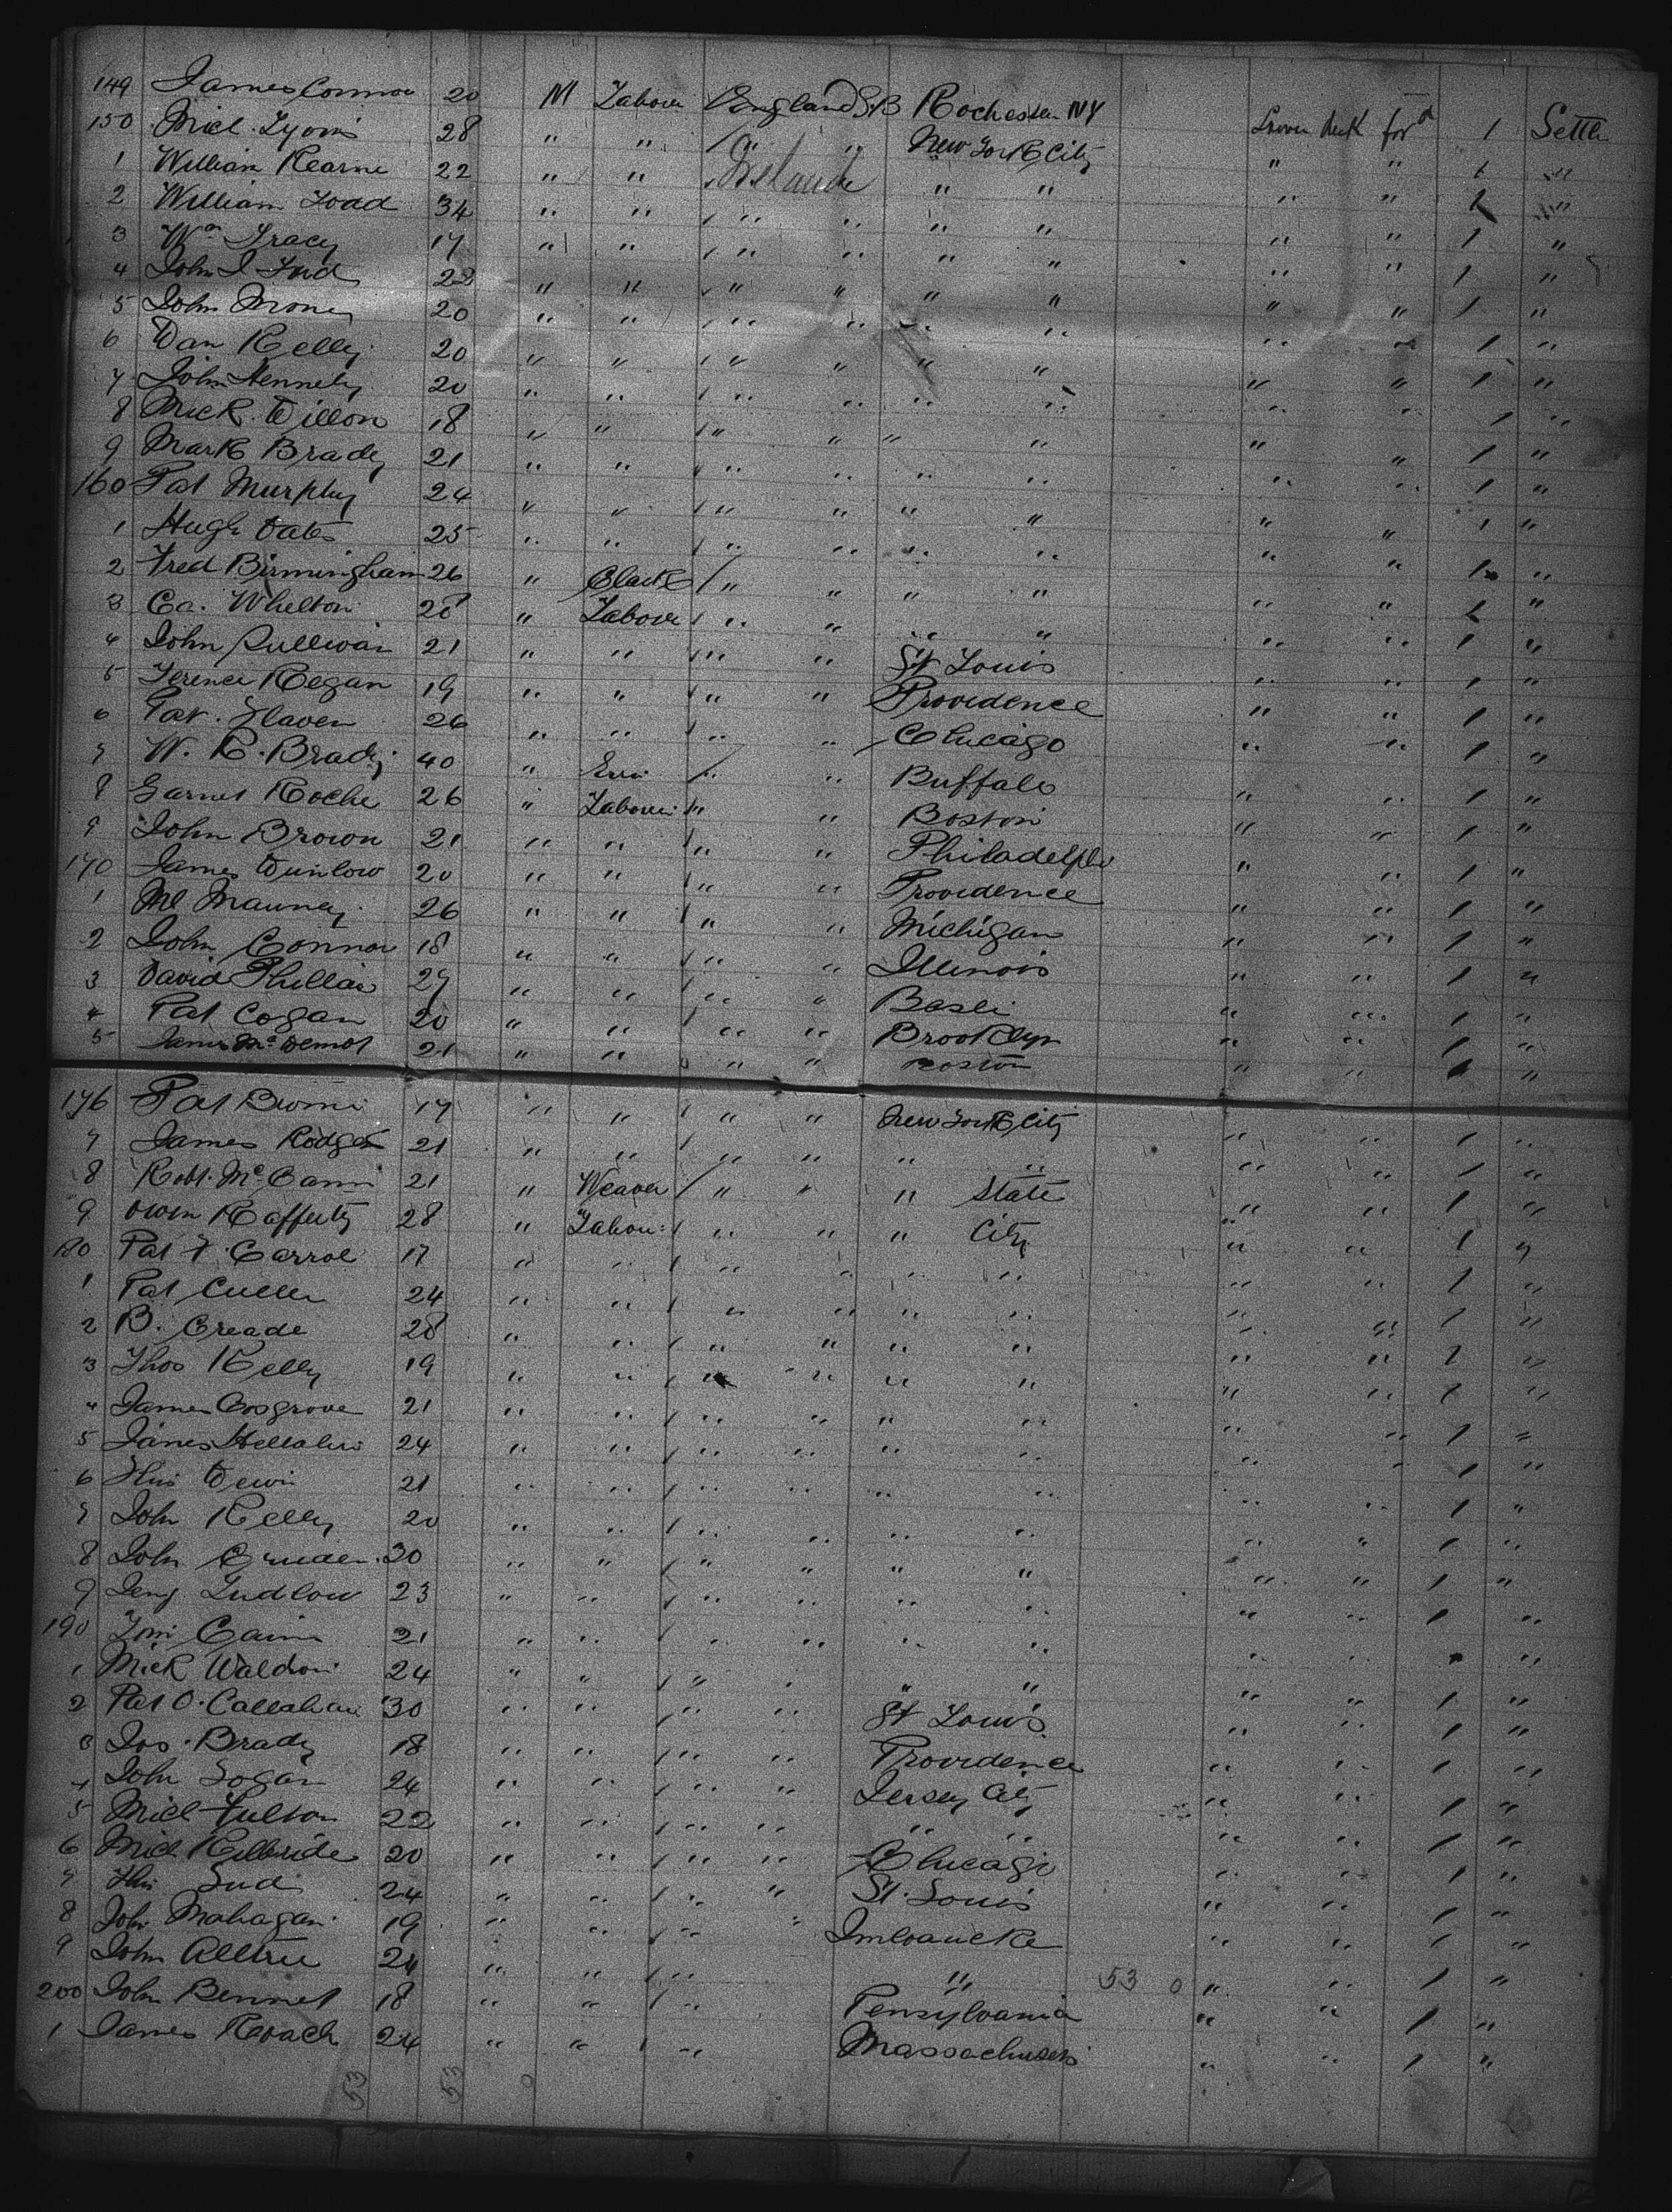 149 James Connor 20 M Labour England S.B Rochester NY Lower deck for^d 1 Settle
150 Micl. Lyons 28 " " " " New York City " " 1 "
1 William Kearne 22 " " Ireland " " " " 1 "
2 William Toad 34 " " " " " " " " 1 "
3 Wm Tracy 17 " " " " " " " " 1 "
4 John J 22 " " " " " " " " 1 "
5 John 20 " " " " " " " " 1 "
6 Dan Kelly 20 " " " " " " " " 1 "
7 John Hennely 20 " " " " " " " " 1 "
8 Mick. Dillon 18 " " " " " " " " 1 "
9 Mark Brady 21 " " " " " " " " 1 "
160 Pat Murphy 24 " " " " " " " " 1 "
1 Hugh Oates 25 " " " " " " " " 1 "
2 Fred Birmingham 26 " Clark " " " " " " 1 "
3 Ea. Whelton 28 " Labour " " " " " " 1 "
4 John Sullivan 21 " " " " St Louis " " 1 "
5 Terence Regan 19 " " " " Providence " " 1 "
6 Pat. Slaven 26 " " " " Chicago " " 1 "
7 W. R. Brady 40 " " " Buffalo " " 1 "
8 Garnet Roche 26 " Labour " " Boston " " 1 "
9 John Brown 21 " " " " Philadelphi " " 1 "
170 James Dunlow 20 " " " " Providence " " 1 "
1 Ml Mauney 26 " " " " Michigan " " 1 "
2 John Connor 18 " " " " Illinois " " 1 "
3 David 27 " " " " " " 1 "
4 Pat Cogan 20 " " " " Brooklyn " " 1 "
5 James Mc Demot 21 " " " " Boston " " 1 "
176 Pat 17 " " " " New York City " " 1 "
7 James Rodgers 21 " " " " " " " " 1 "
8 Robt. Mc Cann 21 " Weaver " " " State " " 1 "
9 Owen Rafferty 28 " Labour " " " City " " 1 "
180 Pat F. Carrol 17 " " " " " " " " 1 "
1 Pat Cullen 24 " " " " " " " " 1 "
2 B. Creade 28 " " " " " " " " 1 "
3 Thos Kelly 19 " " " " " " " " 1 "
4 James Cosgrove 21 " " " " " " " " 1 "
5 James 24 " " " " " " " " 1 "
6 21 " " " " " " " " 1 "
7 John Kelly 20 " " " " " " " " 1 "
8 John Cruden 30 " " " " " " " " 1 "
9 Ludlow 23 " " " " " " " " 1 "
190 Tom Cain 21 " " " " " " " " 1 "
1 Mick Waldron 24 " " " " " " " " 1 "
2 Pat O. Callahan 30 " " " " St Louis " " 1 "
3 Jos. Brady 18 " " " " Providence " " 1 "
4 John Logan 24 " " " " Jersey City " " 1 "
5 Micl Fulton 22 " " " " " " " " 1 "
6 Micl Kilbride 20 " " " " Chicago " " 1 "
7 24 " " " " St. Louis " " 1 "
8 John Mahagan 19 " " " " " " 1 "
9 John Alltree 24 " " " " 53 0 " " 1 "
200 John Bennet 18 " " " Pensylvania " " 1 "
1 James Roach 24 " " " Massachusets " " 1 "
53 53 0